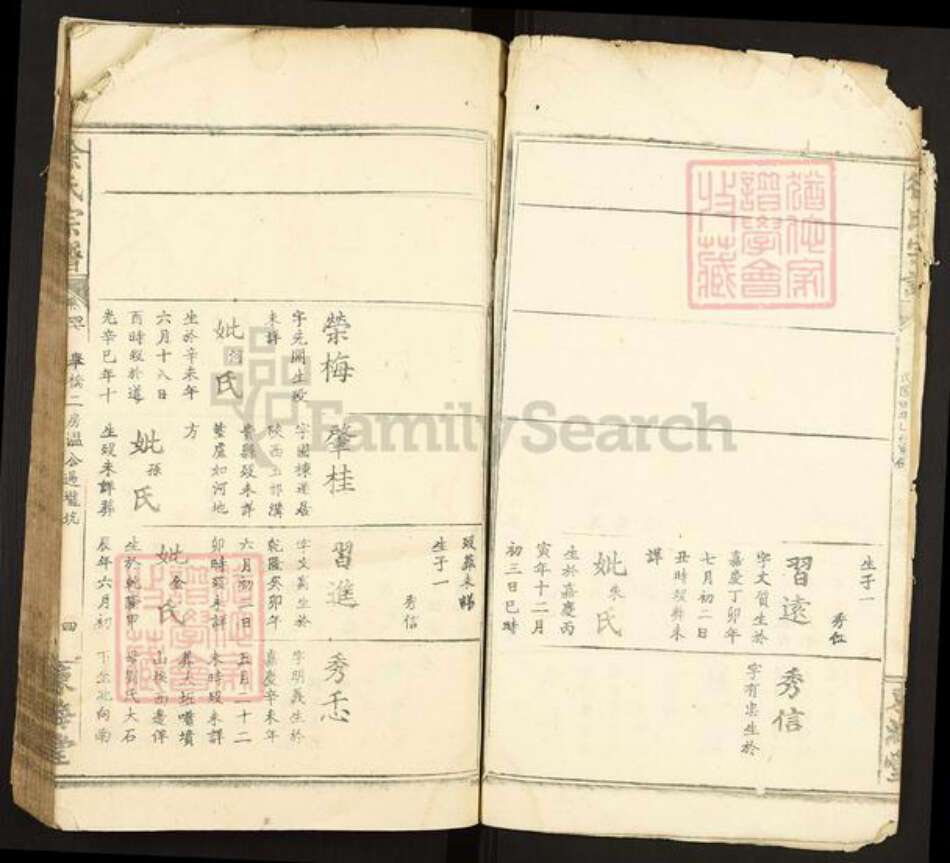 生子一
秀伍
習遠
字文質生於
嘉慶丁卯年
七月初二日
丑時歿葬未
詳
妣朱氏
生於嘉慶丙
寅年十二月
初三日巳時
秀信
字有忠生於
東海堂
歿葬未詳
生子一
秀信
榮梅
字元開生歿
未詳
妣何氏
生於辛未年
六月十八日
酉時歿於道
光辛巳年十
肇桂
字國棟遷居
陝西
縣歿未詳
葬盧如河地
方
妣孫氏
生歿未詳葬
習進
字文高生於
乾隆癸卯年
六月初二日
卯時歿未詳
妣余氏
生於乾隆甲
辰年六月初
秀志
字明義生於
嘉慶辛未年
五月二十二
未時歿未詳
葬大坵嘴墳
山後西邊伴
母劉氏大石
下坐北向南
徐氏宗譜
四
東海堂
猶他家譜學會收藏
FamilySearch